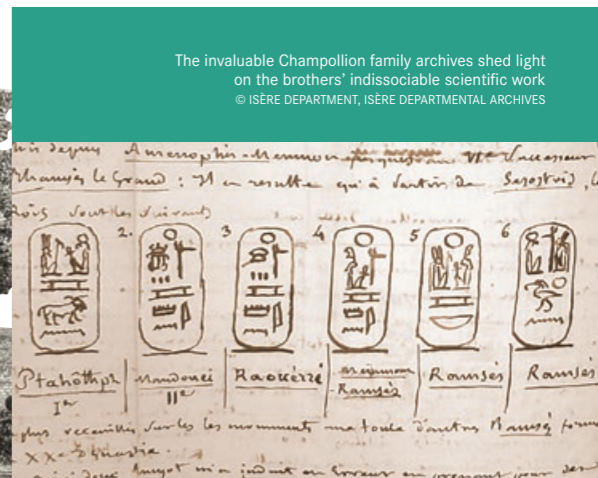 The invaluable Champollion family archives shed light
on the brothers' indissociable scientific work
© ISÈRE DEPARTMENT, ISÈRE DEPARTMENTAL ARCHIVES
depuis Amenophis-Memnon jusques au successeur
Rhamsès le Grand : Il en resulte qu'à partir de Sesostris, l
Rois sont les suivants
2. 3 4 5 6
Ptahôthph Mandouei Raouérré Meiamoun Ramsès Ramsès
Ier IIe Ramsès
plus recueillis sur les monuments une foule d'autres Ramsès
XXe Dynastie.
deux m'a induit en erreur en prenant pour des